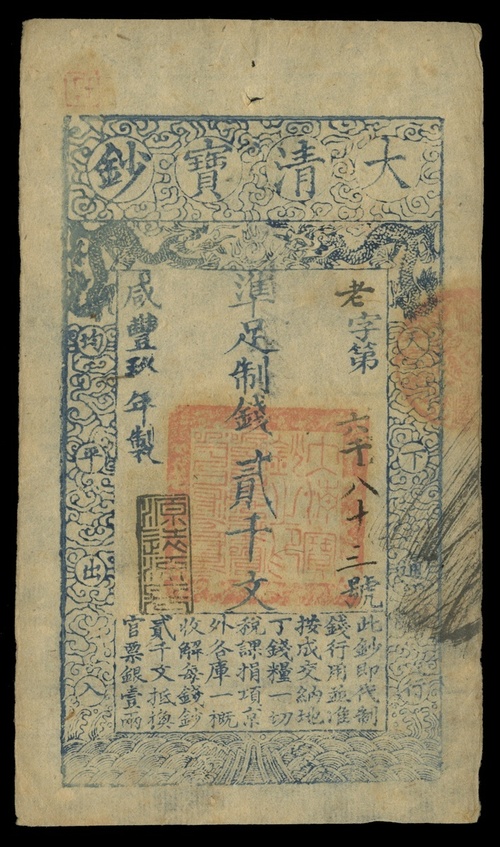 大清寶鈔
天下通行
老字第六千八十三號
準足制錢貳千文
咸豐玖年製
均平出入
此鈔即代制
錢行用並准
按成交納地
丁錢糧一切
稅課捐項京
外各庫一概
收解每錢鈔
貳千文抵換
官票銀壹兩